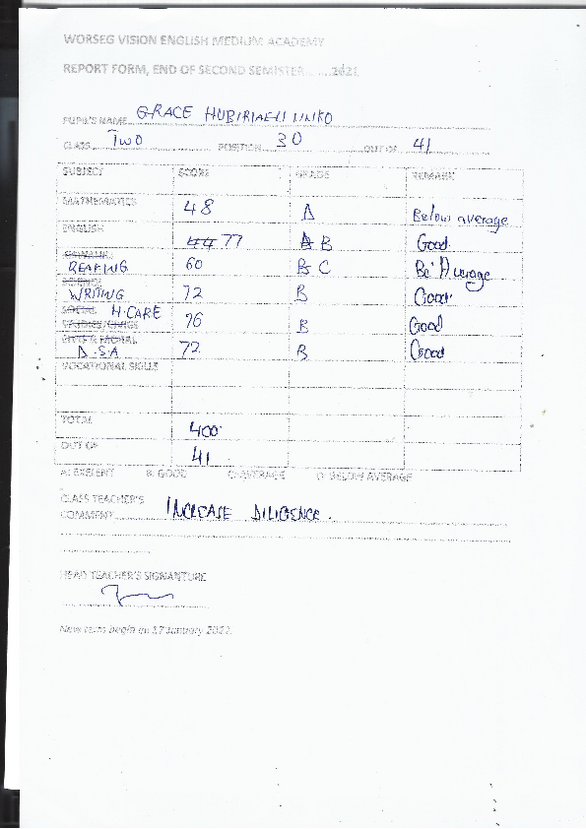 WORSEG VISION ENGLISH MEDIUM ACADEMY
REPORT FORM, END OF SECOND SEMISTER ......2021
PUPIL'S NAME GRACE
CLASS Two POSITION 30 OUT OF 41
SUBJECT SCORE GRADE REMARK
MATHEMATICS 48 D Below average
ENGLISH 44 77 A B Good
READING 60 B C Average
WRITING 72 B Good
SOCIAL H.CARE
STUDIES/CIVICS 76 B Good
D.S.A 72 B Good
VOCATIONAL SKILLS
TOTAL 400
OUT OF 41
A: EXELENT B. GOOD C. AVERAGE D. BELOW AVERAGE
CLASS TEACHER'S
COMMENT INCREASE DILIGENCE.
HEAD TEACHER'S SIGNANTURE
New term begin on 17 January 2022.